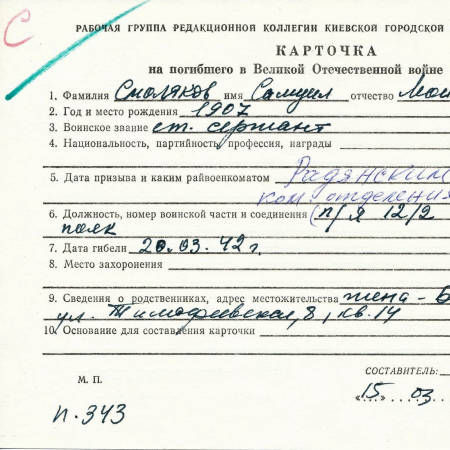 С
РАБОЧАЯ ГРУППА РЕДАКЦИОННОЙ КОЛЛЕГИИ КИЕВСКОЙ ГОРОДСКОЙ
КАРТОЧКА
на погибшего в Великой Отечественной войне
1. Фамилия Смоляков имя Самуил отчество Мои
2. Год и место рождения 1907
3. Воинское звание ст. сержант
4. Национальность, партийность, профессия, награды
5. Дата призыва и каким райвоенкоматом Радянским
ком. отделения
6. Должность, номер воинской части и соединения (п/я 12/2
полк
7. Дата гибели 20.03.42 г.
8. Место захоронения
9. Сведения о родственниках, адрес местожительства жена - Б
ул. Тимофеевская, 8, кв. 14
10. Основание для составления карточки
СОСТАВИТЕЛЬ:
М. П.
«15» 03
п. 343